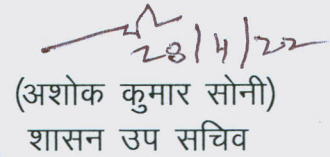 28/4/22
(अशोक कुमार सोनी)
शासन उप सचिव